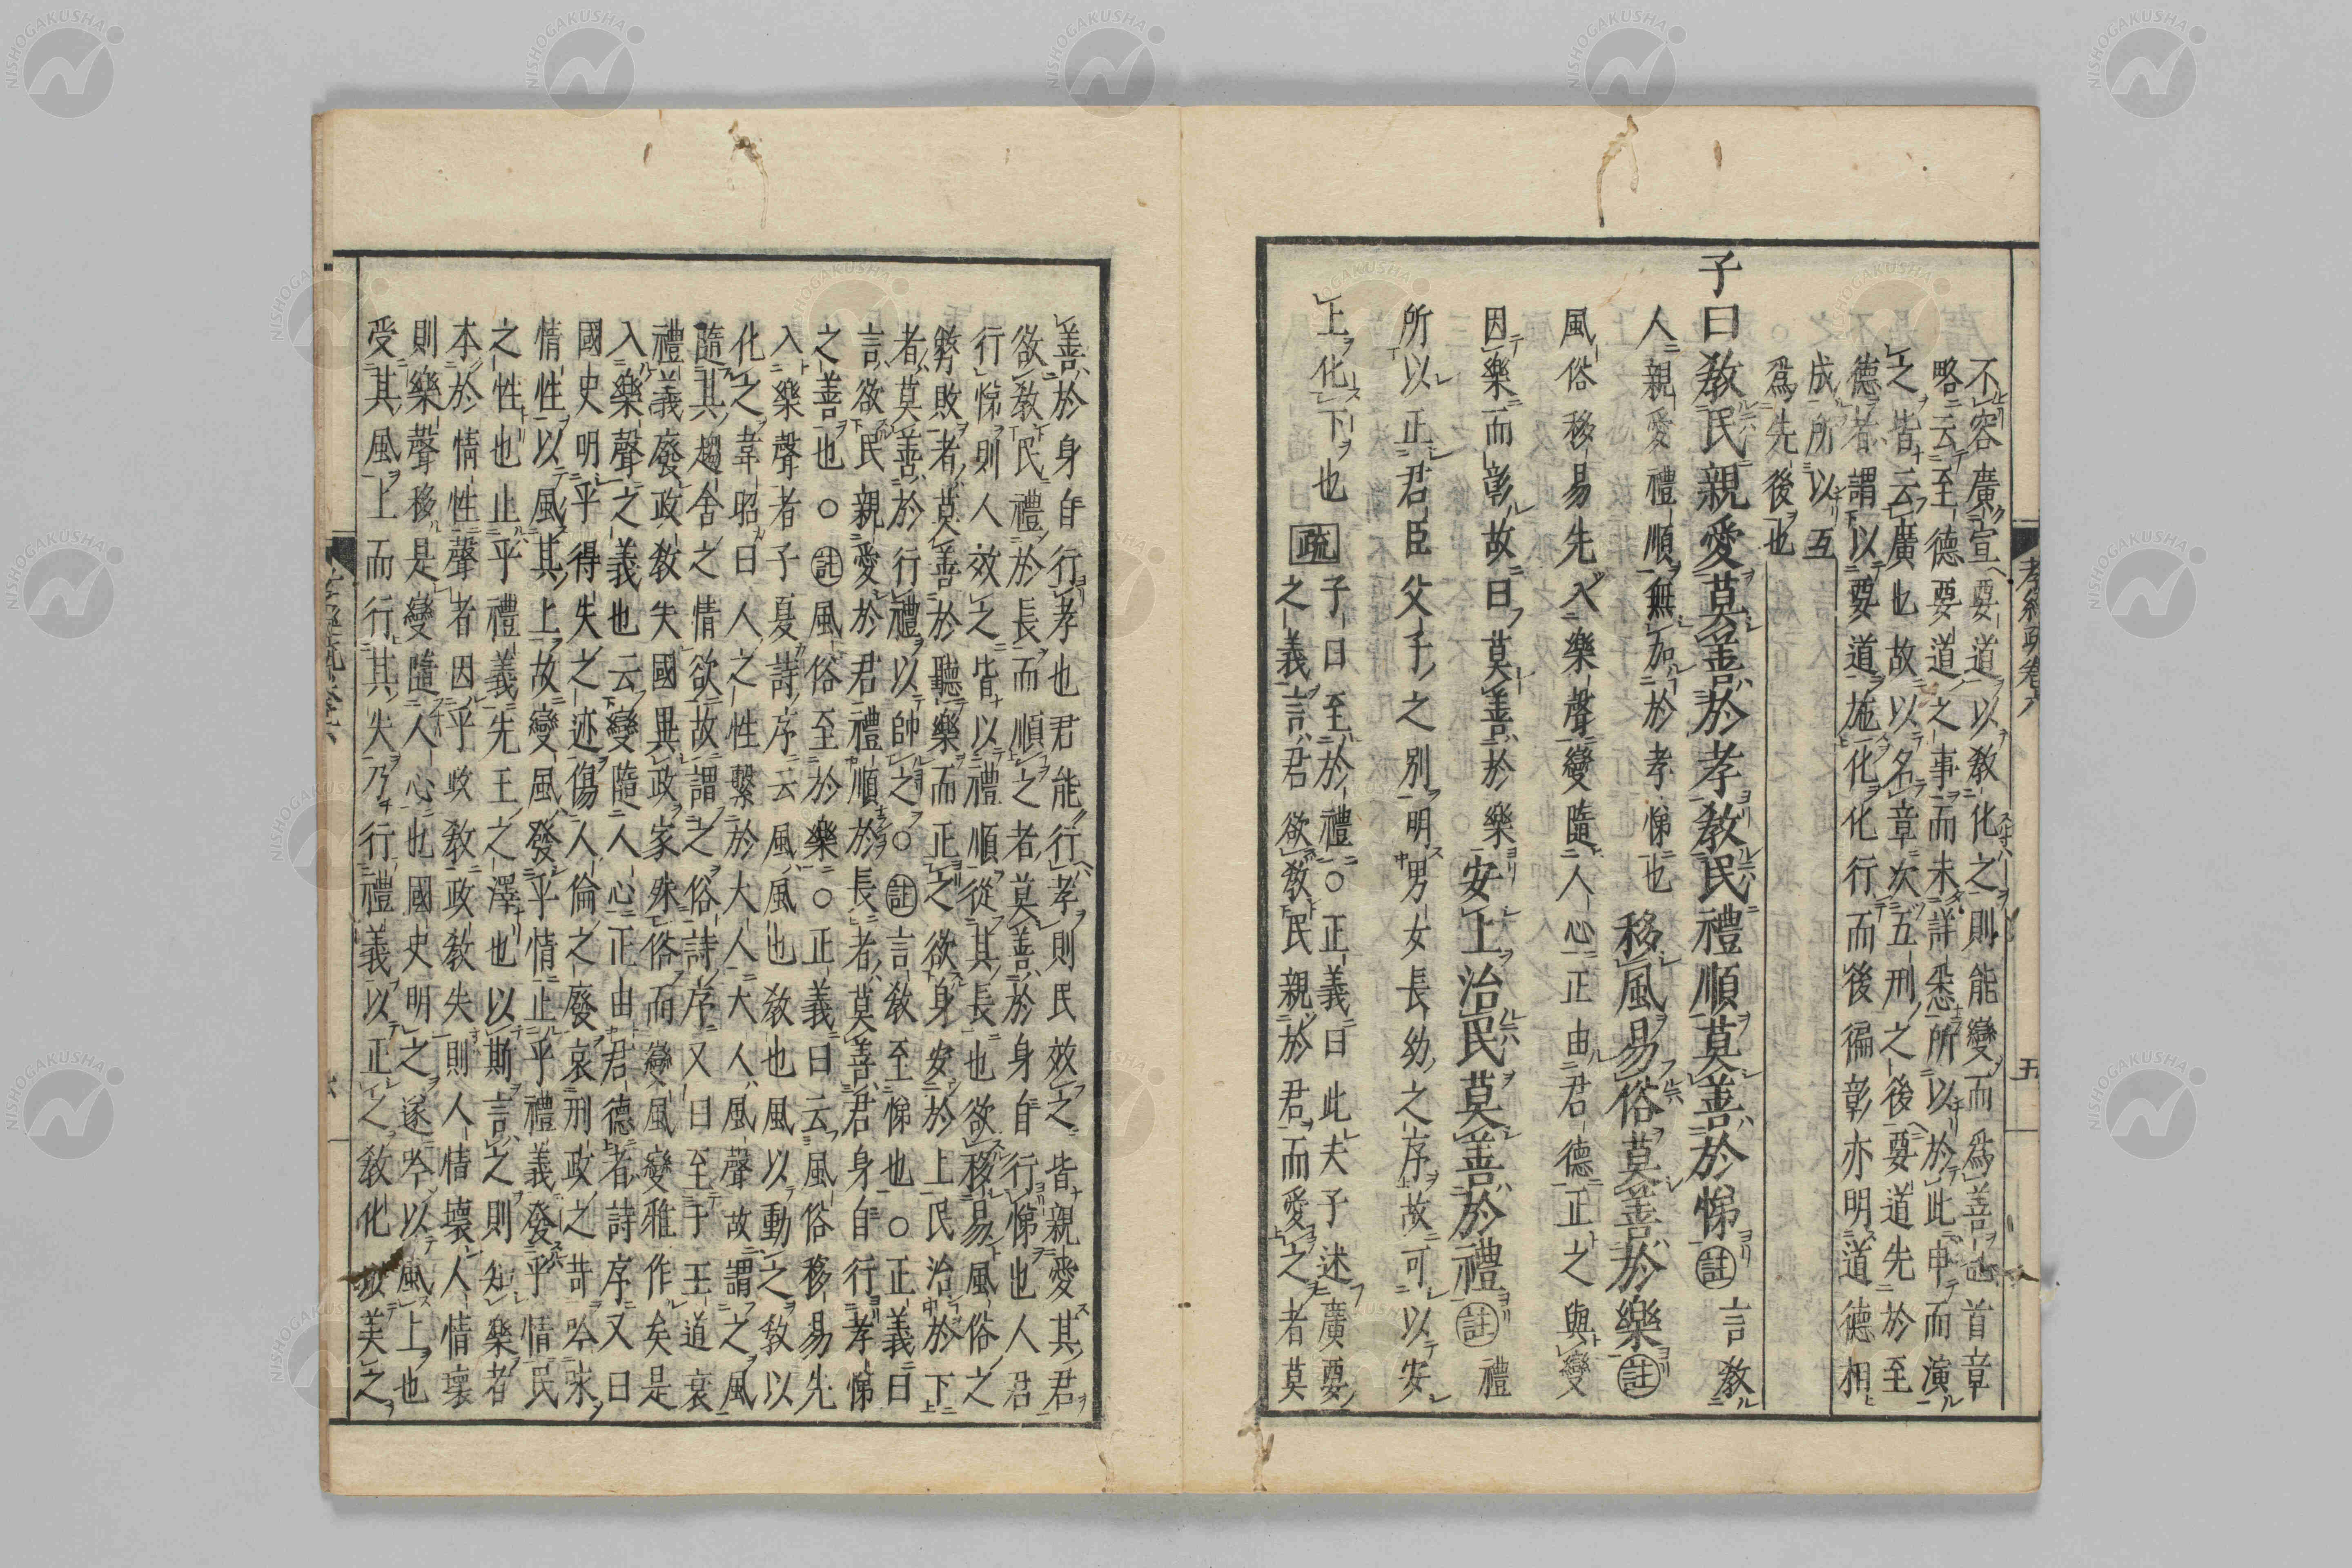 孝經疏卷六
五
不容廣宣要道以教化之則能變而爲善也首章
略云至德要道之事而未詳悉所以於此申而演
之皆云廣也故以名章次五刑之後要道先於至
德者謂以要道施化化行而後徧彰亦明道德相
成所以互
爲先後也
子曰教民親愛莫善於孝教民禮順莫善於悌註言教
人親愛禮順無加於孝悌也移風易俗莫善於樂註
風俗移易先入樂聲變隨人心正由君德正之與變
因樂而彰故曰莫善於樂安上治民莫善於禮註禮
所以正君臣父子之別明男女長幼之序故可以安
上化下也疏子曰至於禮○正義曰此夫子述廣要
之義言君欲教民親於君而愛之者莫
善於身自行孝也君能行孝則民效之皆親愛其君
欲教民禮於長而順之者莫善於身自行悌也人君
行悌則人效之皆以禮順從其長也欲移易風俗之
弊敗者莫善於聽樂而正之欲身安於上民治於下
者莫善於行禮以帥之○註言教至悌也○正義曰
言欲民親愛於君禮順於長者莫善君身自行孝悌
之善也○註風俗至於樂○正義曰云風俗移易先
入樂聲者子夏詩序云風風也教也風以動之教以
化之韋昭曰人之性繫於大人大人風聲故謂之風
隨其趨舍之情欲故謂之俗詩序又曰至于王道衰
禮義廢政教失國異政家殊俗而變風變雅作矣是
入樂聲之義也云變隨人心正由君德者詩序又曰
國史明乎得失之迹傷人倫之廢哀刑政之苛吟咏
情性以風其上故變風發乎情止乎禮義發乎情民
之性也止乎禮義先王之澤也以斯言之則知樂者
本於情性聲者因乎政教政教失則人情壞人情壞
則樂聲移是變隨人心也國史明之遂吟以風上也
受其風上而行其失乃行禮義以正之教化以美之